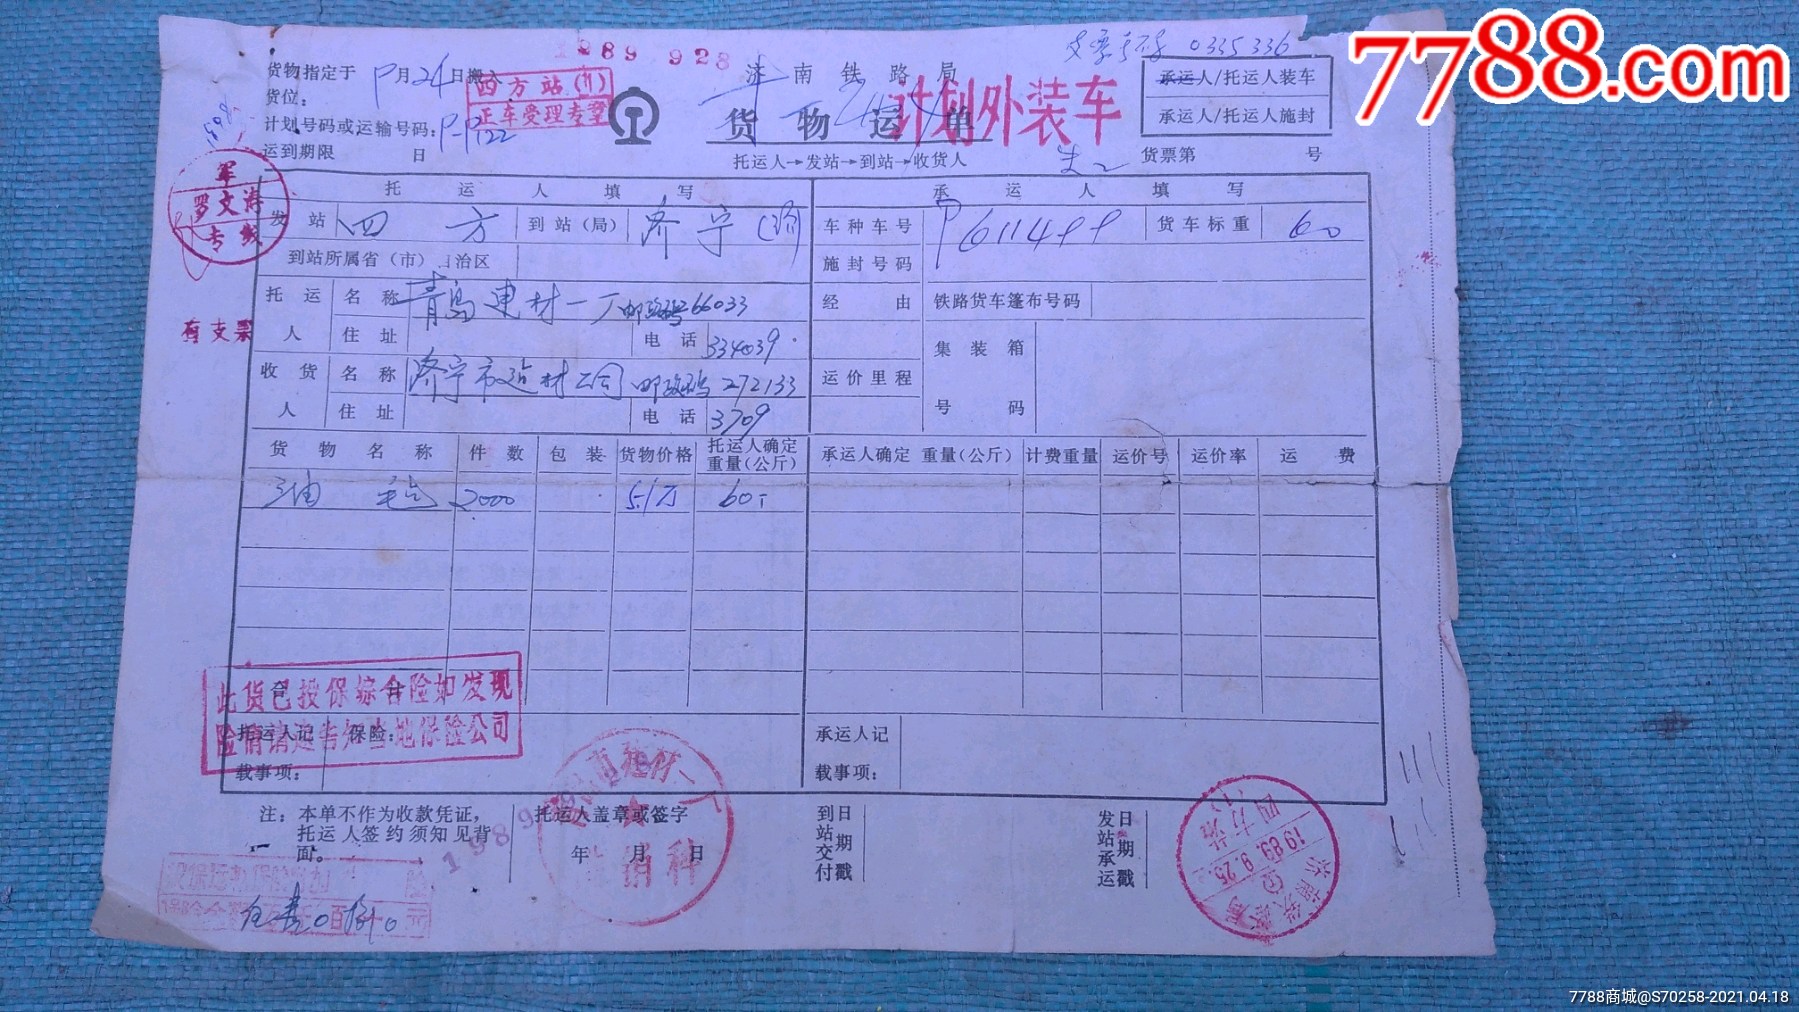 7788.com
1989 928
支票号码 0335336
货物指定于 9月24日搬入
货位：
计划号码或运输号码：P-P122
运到期限 日
四方站(11)
整车受理专章
济南铁路局
货物运单
计划外装车
托运人→发站→到站→收货人
承运人/托运人装车
承运人/托运人施封
货票第 号
军
罗文涛
专线
有支票
托运人填写
承运人填写
发站 四方 到站(局) 济宁(济)
车种车号 P611499 货车标重 60
到站所属省(市)自治区
施封号码
托运人 名称 青岛建材一厂 邮政编码266033
经由 铁路货车篷布号码
住址 电话 334039
集装箱号码
收货人 名称 济宁市建材公司 邮政编码 272133
运价里程
住址 电话 3709
货物名称 件数 包装 货物价格 托运人确定重量(公斤) 承运人确定重量(公斤) 计费重量 运价号 运价率 运费
油毡 2000 5.1万 60T
此货已投保综合险如发现
险情请速告知当地保险公司
托运人记载事项： 保险：
承运人记载事项：
注：本单不作为收款凭证，
托运人签约须知见背
面。
托运人盖章或签字
年 月 日
到站交付日期戳
发站承运日期戳
1989
市建材一厂
销科
济南铁路局
1989.9.25
四方站
(1)
7788商城@S70258-2021.04.18